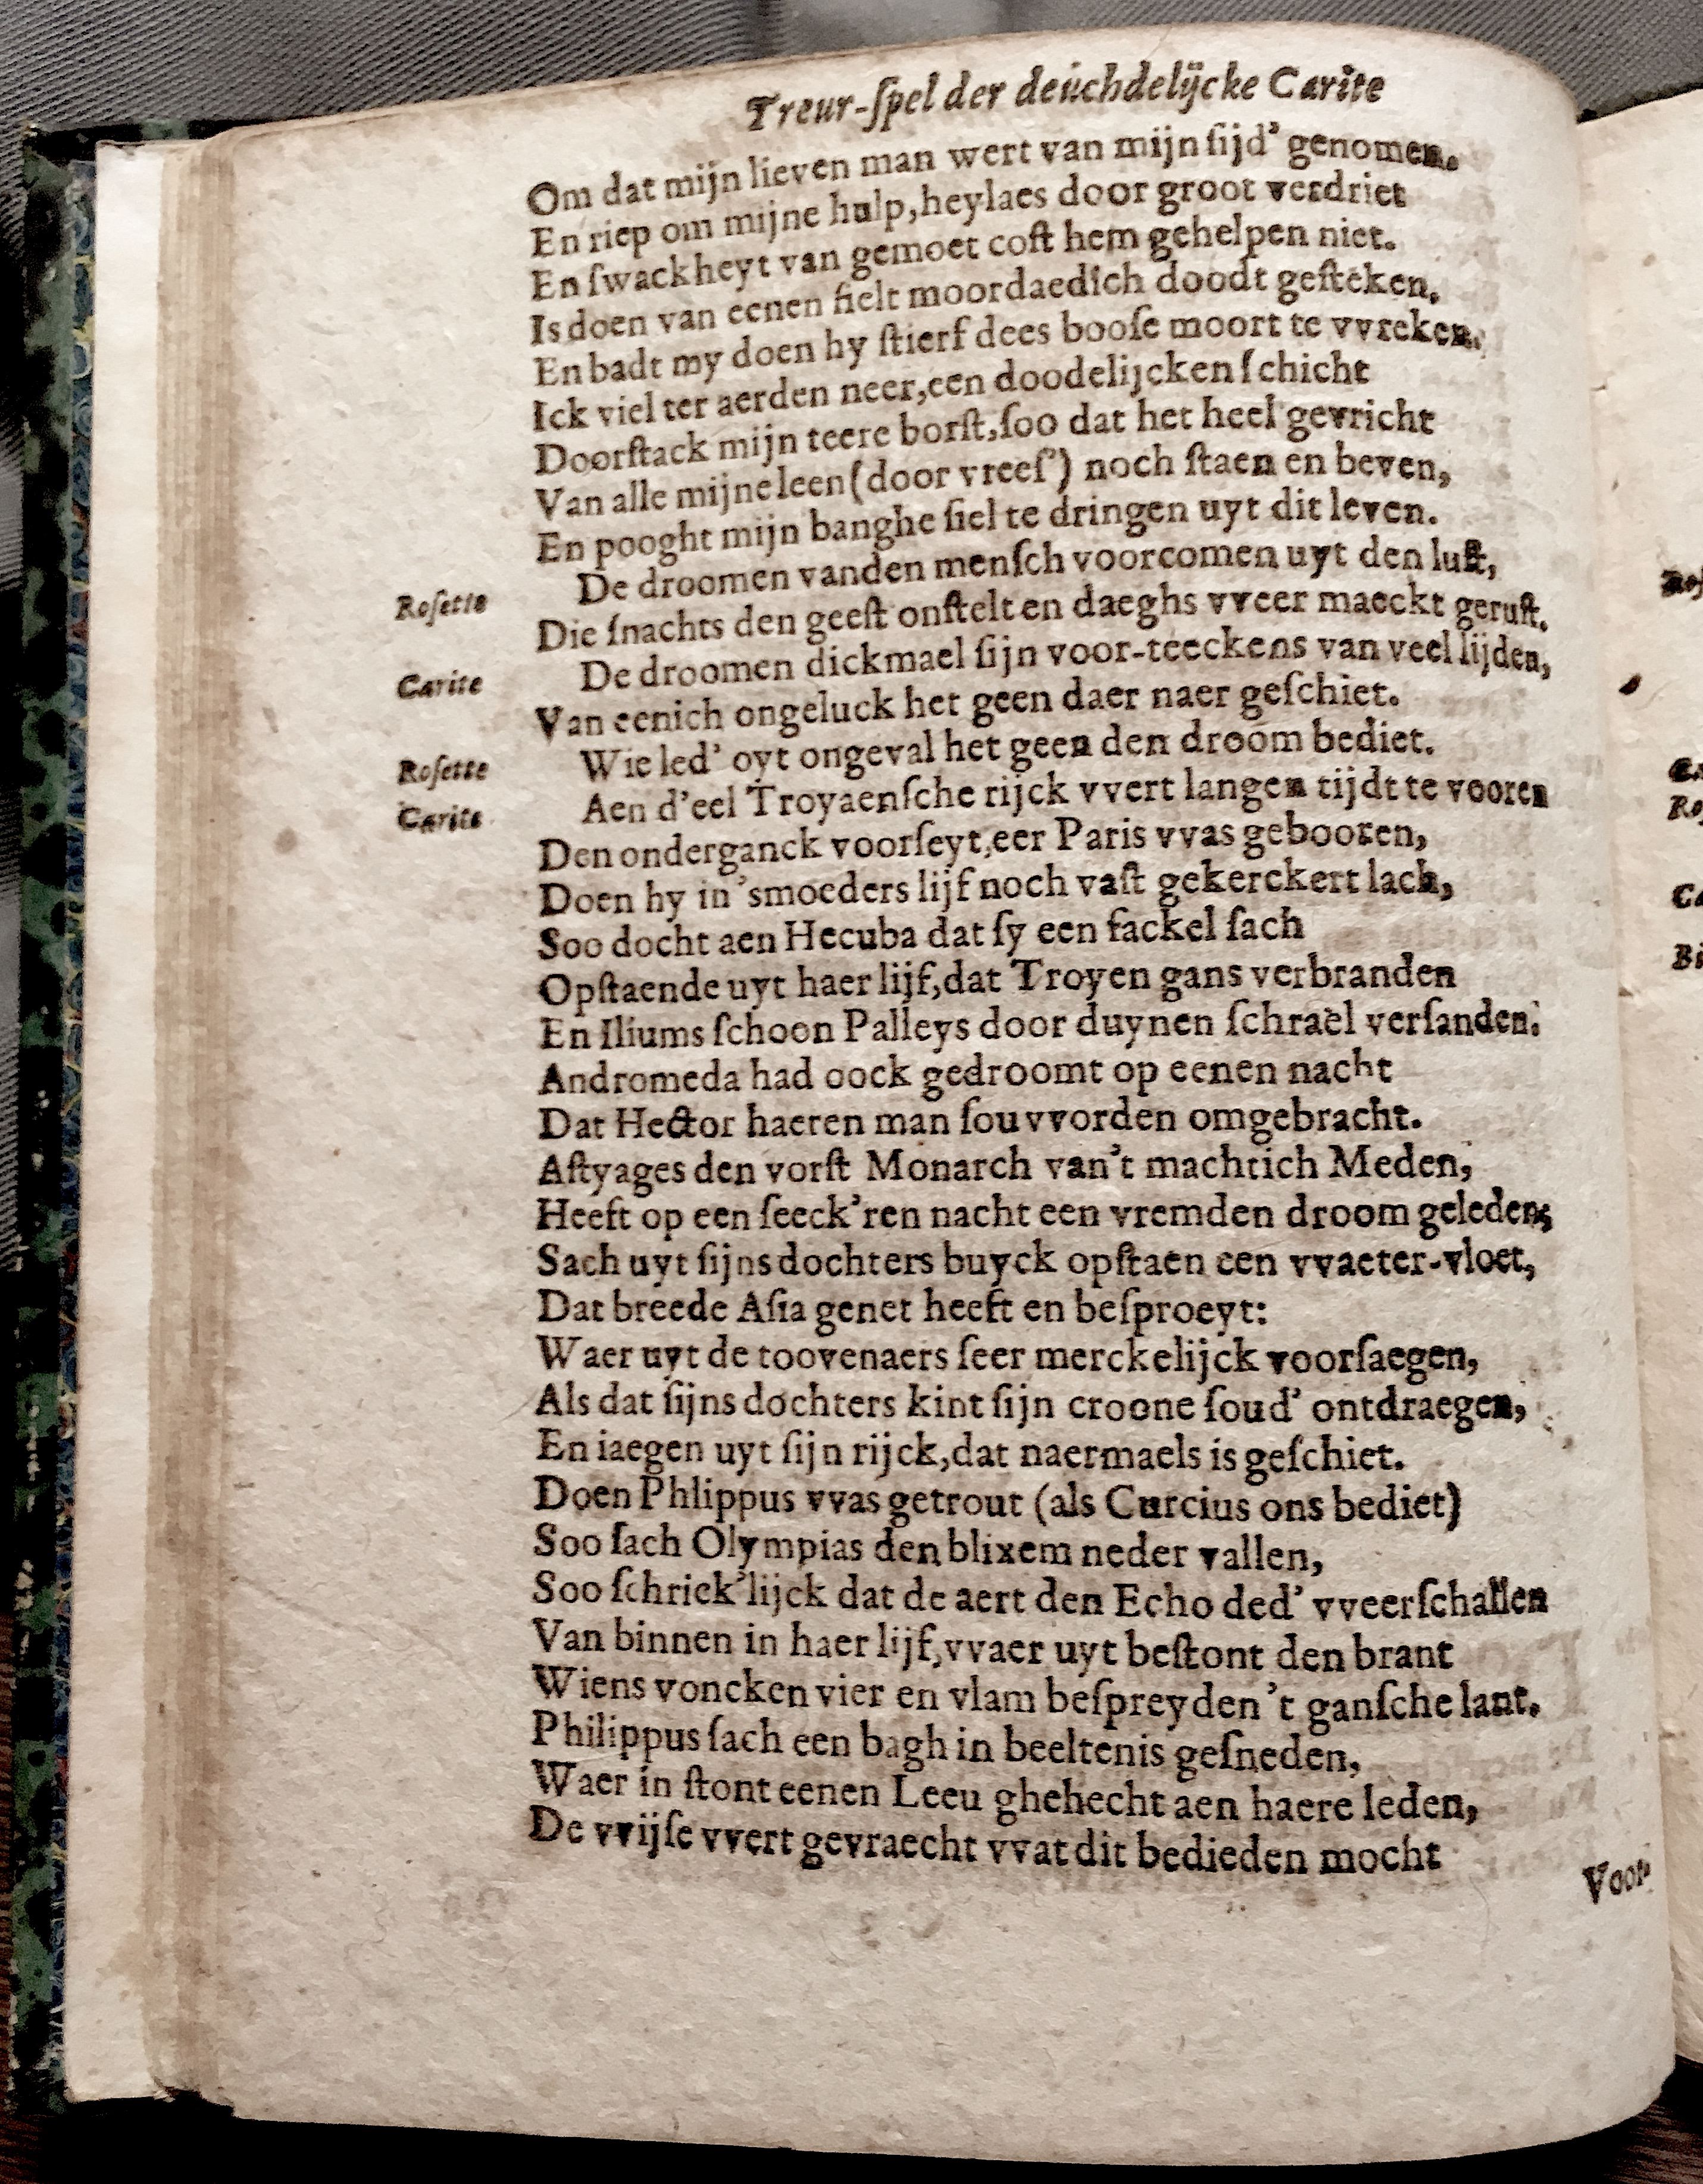 Treur-ſpel der deuchdelijcke Carite
Om dat mijn lieven man wert van mijn ſijd’ genomen.
En riep om mijne hulp, heylaes door groot verdriet
En ſwackheyt van gemoet coſt hem gehelpen niet.
Is doen van eenen fielt moordaedich doodt geſteken.
En badt my doen hy ſtierf dees booſe moort te vvreken.
Ick viel ter aerden neer, een doodelijcken ſchicht
Doorſtack mijn teere borſt, ſoo dat het heel gevricht
Van alle mijne leen (door vreeſ’) noch ſtaen en beven,
En pooght mijn banghe ſiel te dringen uyt dit leven.
Roſette De droomen vanden menſch voorcomen uyt den luſt,
Die ſnachts den geeſt onſtelt en daeghs vveer maeckt geruſt.
Carite De droomen dickmael ſijn voor-teeckens van veel lijden,
Van eenich ongeluck het geen daer naer geſchiet.
Roſette Wie led’ oyt ongeval het geen den droom bediet.
Carite Aen d’eel Troyaenſche rijck vvert langen tijdt te vooren
Den onderganck voorſeyt, eer Paris vvas gebooren,
Doen hy in ’smoeders lijf noch vaſt gekerckert lach,
Soo docht aen Hecuba dat ſy een fackel ſach
Opſtaende uyt haer lijf, dat Troyen gans verbranden
En Iliums ſchoon Palleys door duynen ſchrael verſanden.
Andromeda had oock gedroomt op eenen nacht
Dat Hector haeren man ſou vvorden omgebracht.
Aſtyages den vorſt Monarch van’t machtich Meden,
Heeft op een ſeeck’ren nacht een vremden droom geleden;
Sach uyt ſijns dochters buyck opſtaen een vvaeter-vloet,
Dat breede Aſia genet heeft en beſproeyt:
Waer uyt de toovenaers ſeer merckelijck voorſaegen,
Als dat ſijns dochters kint ſijn croone ſoud’ ontdraegen,
En iaegen uyt ſijn rijck, dat naermaels is geſchiet.
Doen Phlippus vvas getrout (als Curcius ons bediet)
Soo ſach Olympias den blixem neder vallen,
Soo ſchriek’lijck dat de aert den Echo ded’ vveerſchallen
Van binnen in haer lijf, vvaer uyt beſtont den brant
Wiens voncken vier en vlam beſpreyden ’t ganſche lant.
Philippus ſach een bagh in beeltenis geſneden,
Waer in ſtont eenen Leeu ghehecht aen haere leden,
De vvijſe vvert gevraecht vvat dit bedieden mocht
Voor